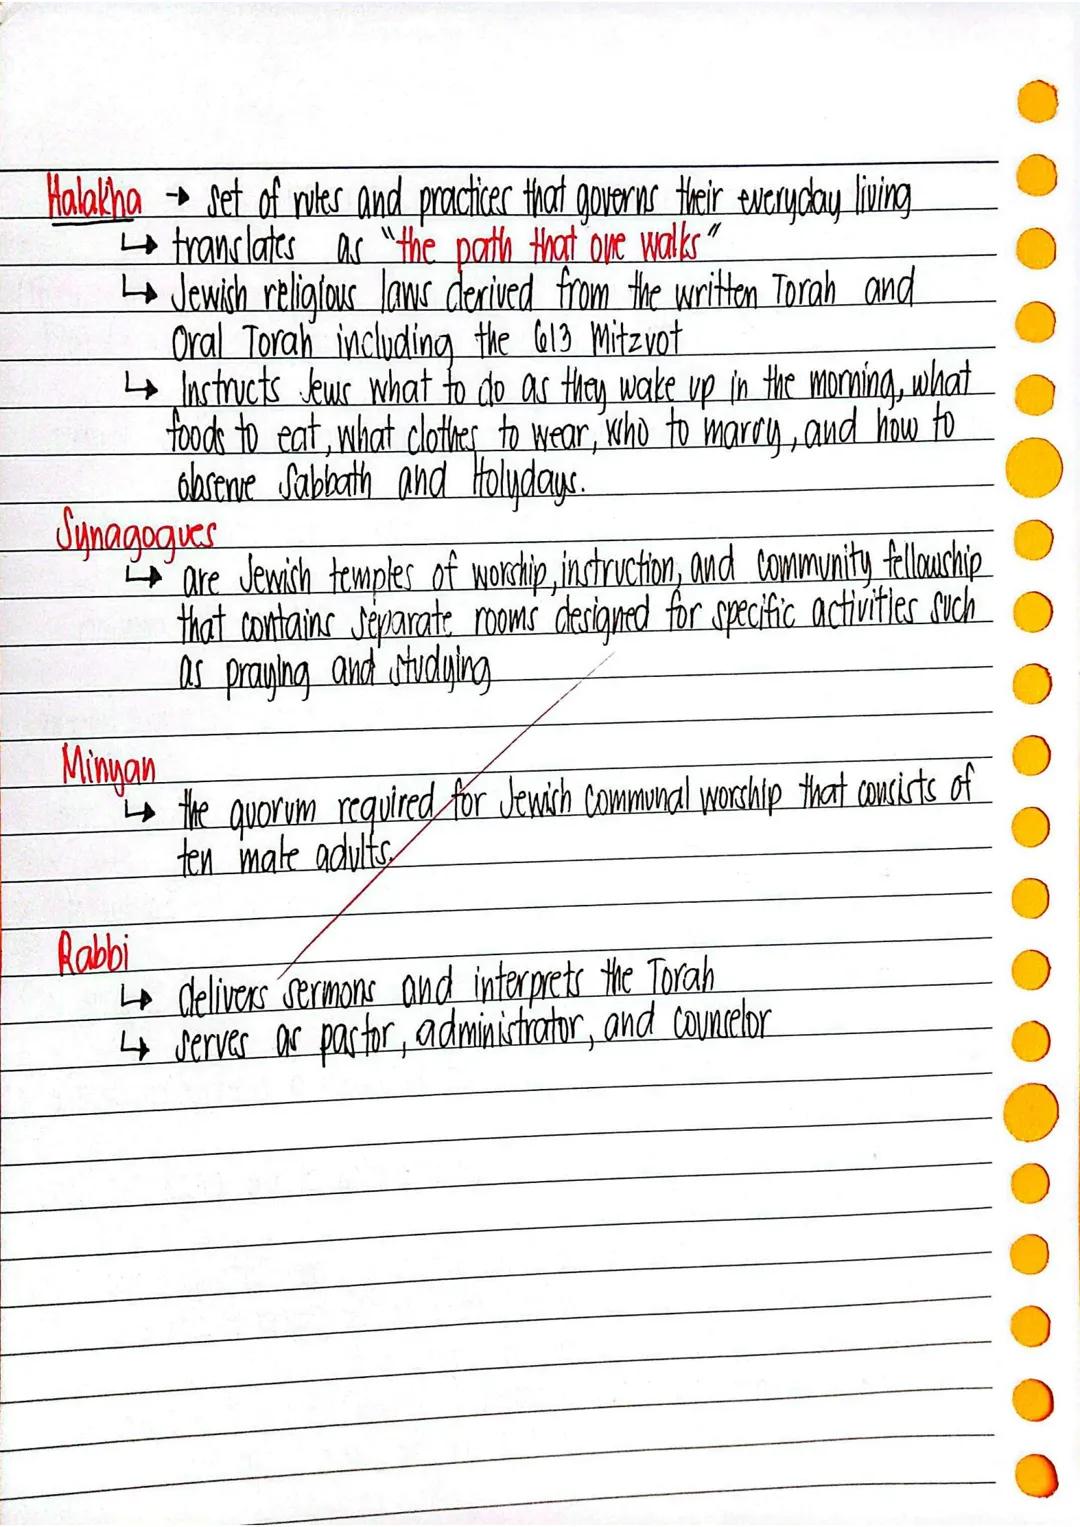 Halakha → set of rules and practices that governs their everyday living
↳ translates as "the path that one walks"
↳ Jewish religious laws derived from the written Torah and
Oral Torah including the 613 Mitzvot
↳ Instructs Jews what to do as they wake up in the morning, what
foods to eat, what clothes to wear, who to marry, and how to
observe Sabbath and Holydays.
Synagogues
↳ are Jewish temples of worship, instruction, and community fellowship
that contains separate rooms designed for specific activities such
as praying and studying
Minyan
↳ the quorum required for Jewish Communal worship that consists of
ten male adults.
Rabbi
↳ delivers sermons and interprets the Torah
↳ serves as pastor, administrator, and counselor